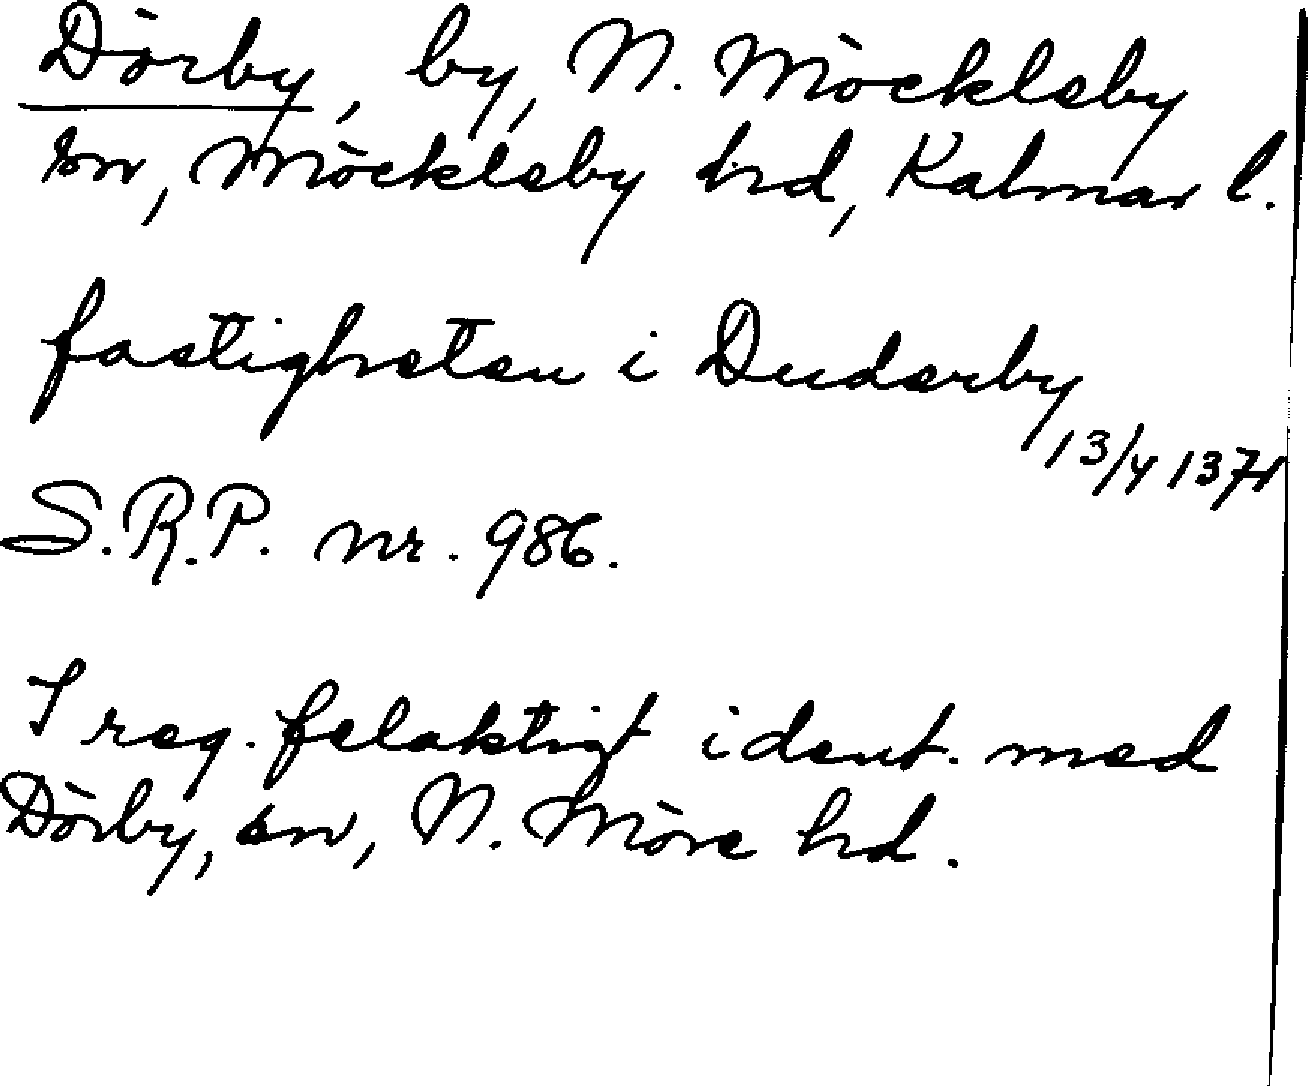 Dörby, by, N. Möckleby
sn, Möckleby hrd, Kalmar l.
fastigheten i Duderby
13/4 137
S.R.P. nr. 986.
I reg. felaktigt ident. med
Dörby, sn, N. Möre hrd.